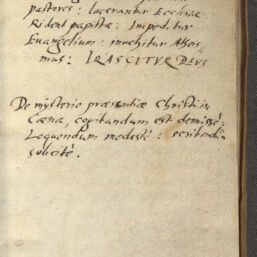 pastores: lacerantur Ecclesiæ.
Rident papistæ: Impeditur
Euangelium: inuehitur Atheis-
mus: IRASCITVR DEVS
De mysterio præsentiæ Christi in
Cœna, cogitandum est demissè:
Loquendum modestè: scribendum
solicitè.